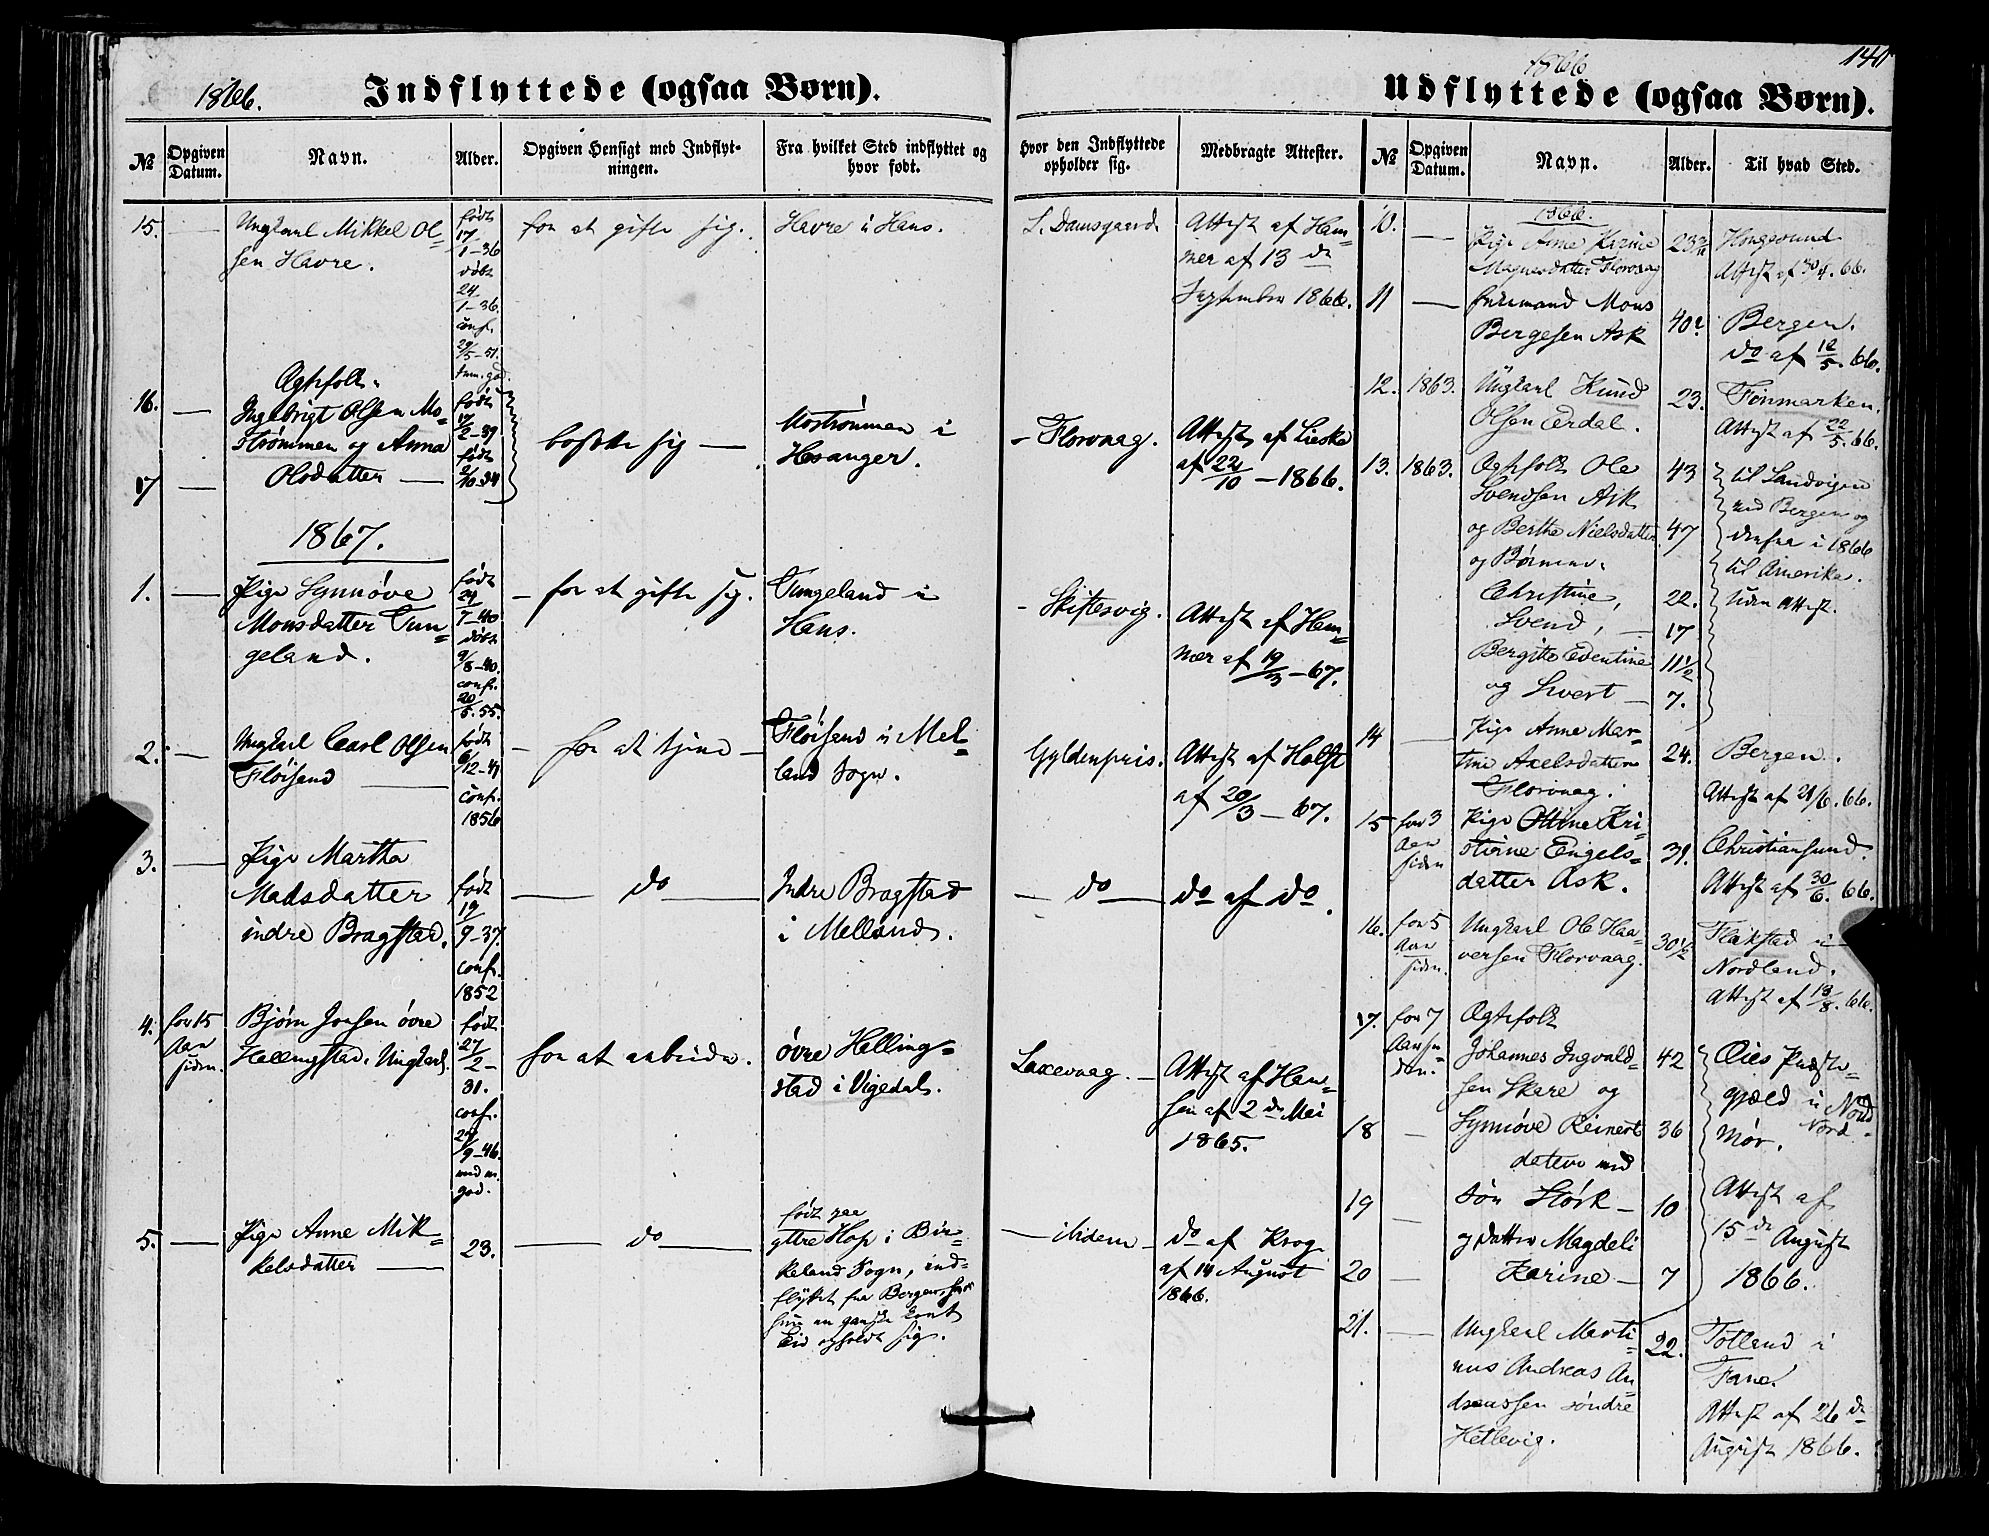 1866.
Indflyttede (ogsaa Børn).
№
Opgiven Datum.
Navn.
Alder.
Opgiven Hensigt med Indflyt-
ningen.
Fra hvilket Sted indflyttet og
hvor født.
15.
Ungkarl Mikkel Ol-
sen Havre.
født
17
1-36
døbt
24
1-36
conf.
29/5-51.
for at gifte sig.
Havre i Hans.
16.
Ægtefolk
Ingebrigt Olsen Mo-
strømmen og Anna
17
Olsdatter
født
17/2-39
født
bosætte sig
Mostrømmen i
Hosanger.
1867.
1.
Pige Synnøve
Monsdatter Tun-
geland.
født
24
7-40
døbt
9/8-40
conf.
20/5.55.
for at gifte sig.
Tungeland i
Hans.
2.
Ungkarl Carl Olsen
Fløisand
født
6/12-41
conf.
1856
for at tjene
Fløisand i Mel-
land Sogn.
3.
Pige Martha
Madsdatter
indre Bragstad.
født
19
9-37.
conf.
1852
do
Indre Bragstad
i Melland.
4.
for 15
Aar
siden.
Bjørn Jonsen øvre
Hellingstad. Ungkarl.
født
27
2-
31.
conf.
27/9-46.
med m.
god.
for at arbeide.
øvre Helling-
stad i Vigedal.
5.
Pige Anne Mik-
kelsdatter
23.
do
født paa
yttre Hop i Bir-
keland Sogn, ind-
flyttet fra Bergen hvor
hun en ganske kort
Tid opholdt sig.
1866
140
Udflyttede (ogsaa Børn).
Hvor den Indflyttede
opholder sig.
Medbragte Attester.
№
Opgiven Datum.
Navn.
Alder.
Til hvad Sted.
L. Damsgaard.
Attest af Ham-
mer af 13 de
September 1866.
Florvaag.
Attest af Lieske
af 22/10 - 1866.
Skiftesvig.
Attest af Ham-
mer af 19/3 - 67.
Gyldenpris.
Attest af Holst
af 20/3 - 67.
do
do af do.
Laxevaag.
Attest af Han-
sen af 2 de Mai
1865.
ibidem
do af Krog
af 14 August
1866.
1866.
10.
Pige Anne Karine
Magnesdatter Florvaag
Hougesund
Attest af 30/4. 66.
11
Mons
Bergesen Ask
40 2
Bergen.
do af 12/5. 66.
12.
1863.
Ungkarl Knud
Olsen Erdal.
23.
Finmarken.
Attest af 22/5. 66.
13.
1863.
Ægtefolk Ole
Svendsen Ask
43
og Berthe Nielsdatter
47
og Børnene
Christine,
22.
Svend,
17
Bergitte Edentine
11 1/2
og Sivert
7.
til Sandvigen
ved Bergen og
derfra i 1866
til Amerika.
Uden Attest.
14
Pige Anne Mar-
tine Axelsdatter
Florvaag.
24.
Bergen.
Attest af 21/6. 66.
15
for 3
Aar
siden
Pige Oline Kri-
stine Engels-
datter Ask.
31.
Christiansund.
Attest af 30/6. 66.
16.
for 5
Aar
siden.
Ungkarl Ole Haa-
versen Florvaag.
30 1/2
Flakstad i
Nordland.
Attest af 13/8. 66.
17.
for 7
Aar si-
den.
Ægtefolk
Johannes Ingvald-
sen Skare og
42
18
Synnøve Reinerts
datter med
36
19
Søn Størk
10
og Datter Magdeli
20
Karine
7
Præste-
gjæld i Nord
Nord-
mør.
Attest af
15 de August
1866.
21.
Ungkarl Marti-
nus Andreas An-
dreassen søndre
Hetlevig.
22.
Totland i
Fane.
Attest af 26 de
August 1866.